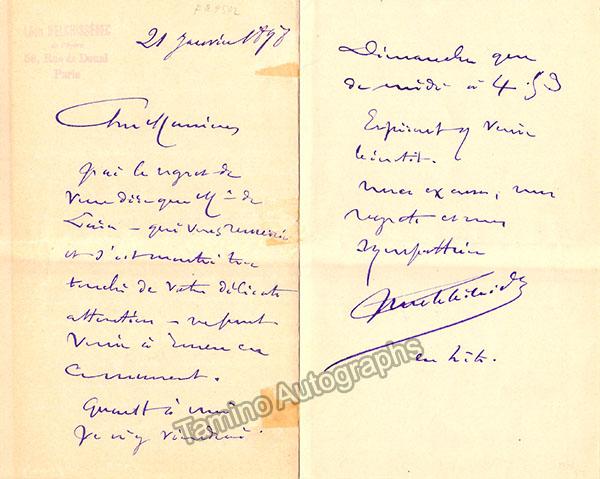 Léon MELCHISSÉDEC
de l'Opéra
Rue de Douai
Paris
21 janvier 1898
Cher Monsieur
J'ai le regret de
vous dire que Mme de
qui vous remercie
et s'est montré très
touché de votre délicate
attention - ne peut
venir à
ce moment.
Quant à moi
je n'y viendrai
Dimanche que
de midi à 4
Espérant y venir
bientôt.
mes excuses, mes
regrets et mes
sympathies
Melchissédec
en hâte.
Tamino Autographs